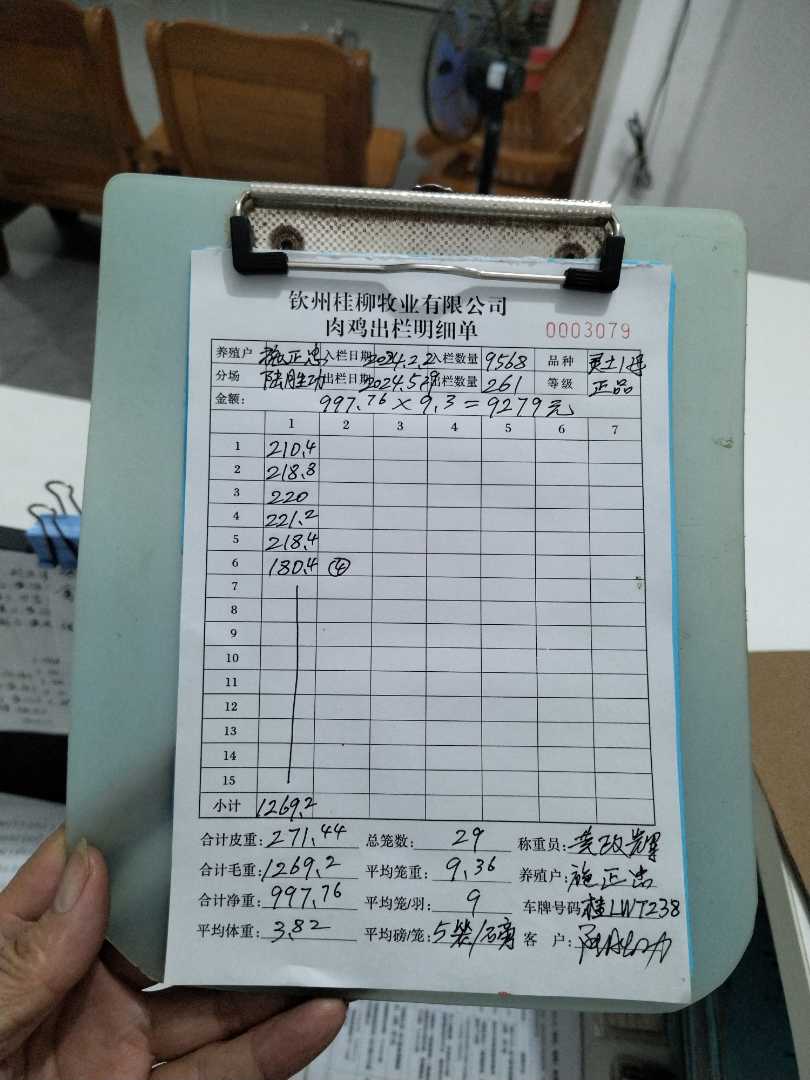 钦州桂柳牧业有限公司
肉鸡出栏明细单 0003079
养殖户 施正忠 入栏日期 2024.2.2 入栏数量 9568 品种 土1号
分场 陆胜功 出栏日期 2024.5. 出栏数量 261 等级 正品
金额: 997.76 × 9.3 = 9279元
1 2 3 4 5 6 7
1 210.4
2 218.8
3 220
4 221.2
5 218.4
6 180.4 ④
7
8
9
10
11
12
13
14
15
小计 1269.2
合计皮重: 271.44 总笼数: 29 称重员:
合计毛重: 1269.2 平均笼重: 9.36 养殖户: 施正忠
合计净重: 997.76 平均笼/羽: 9 车牌号码 桂LWT238
平均体重: 3.82 平均磅/笼: 5装/磅 客 户: